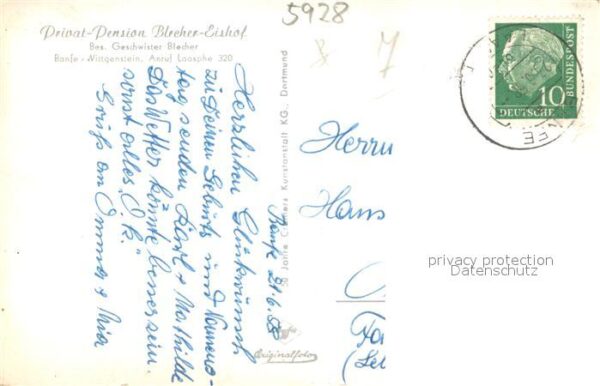 5928
Privat-Pension Blecher-Eishof
Bes. Geschwister Blecher
Banfe - Wittgenstein, Anruf Laasphe 320
Banfe 21.6.58
Herzlichen Glückwunsch
zu Deinem Geburts und Namens-
tag senden Karl + Mathilde
Das Wetter könnte besser sein.
sonst alles „O.k."
Gruß an Ommer + Mia
30 Jahre Cramers Kunstanstalt KG., Dortmund
Originalfoto
7
Herrn
Hans
10
DEUTSCHE
BUNDESPOST
privacy protection
Datenschutz